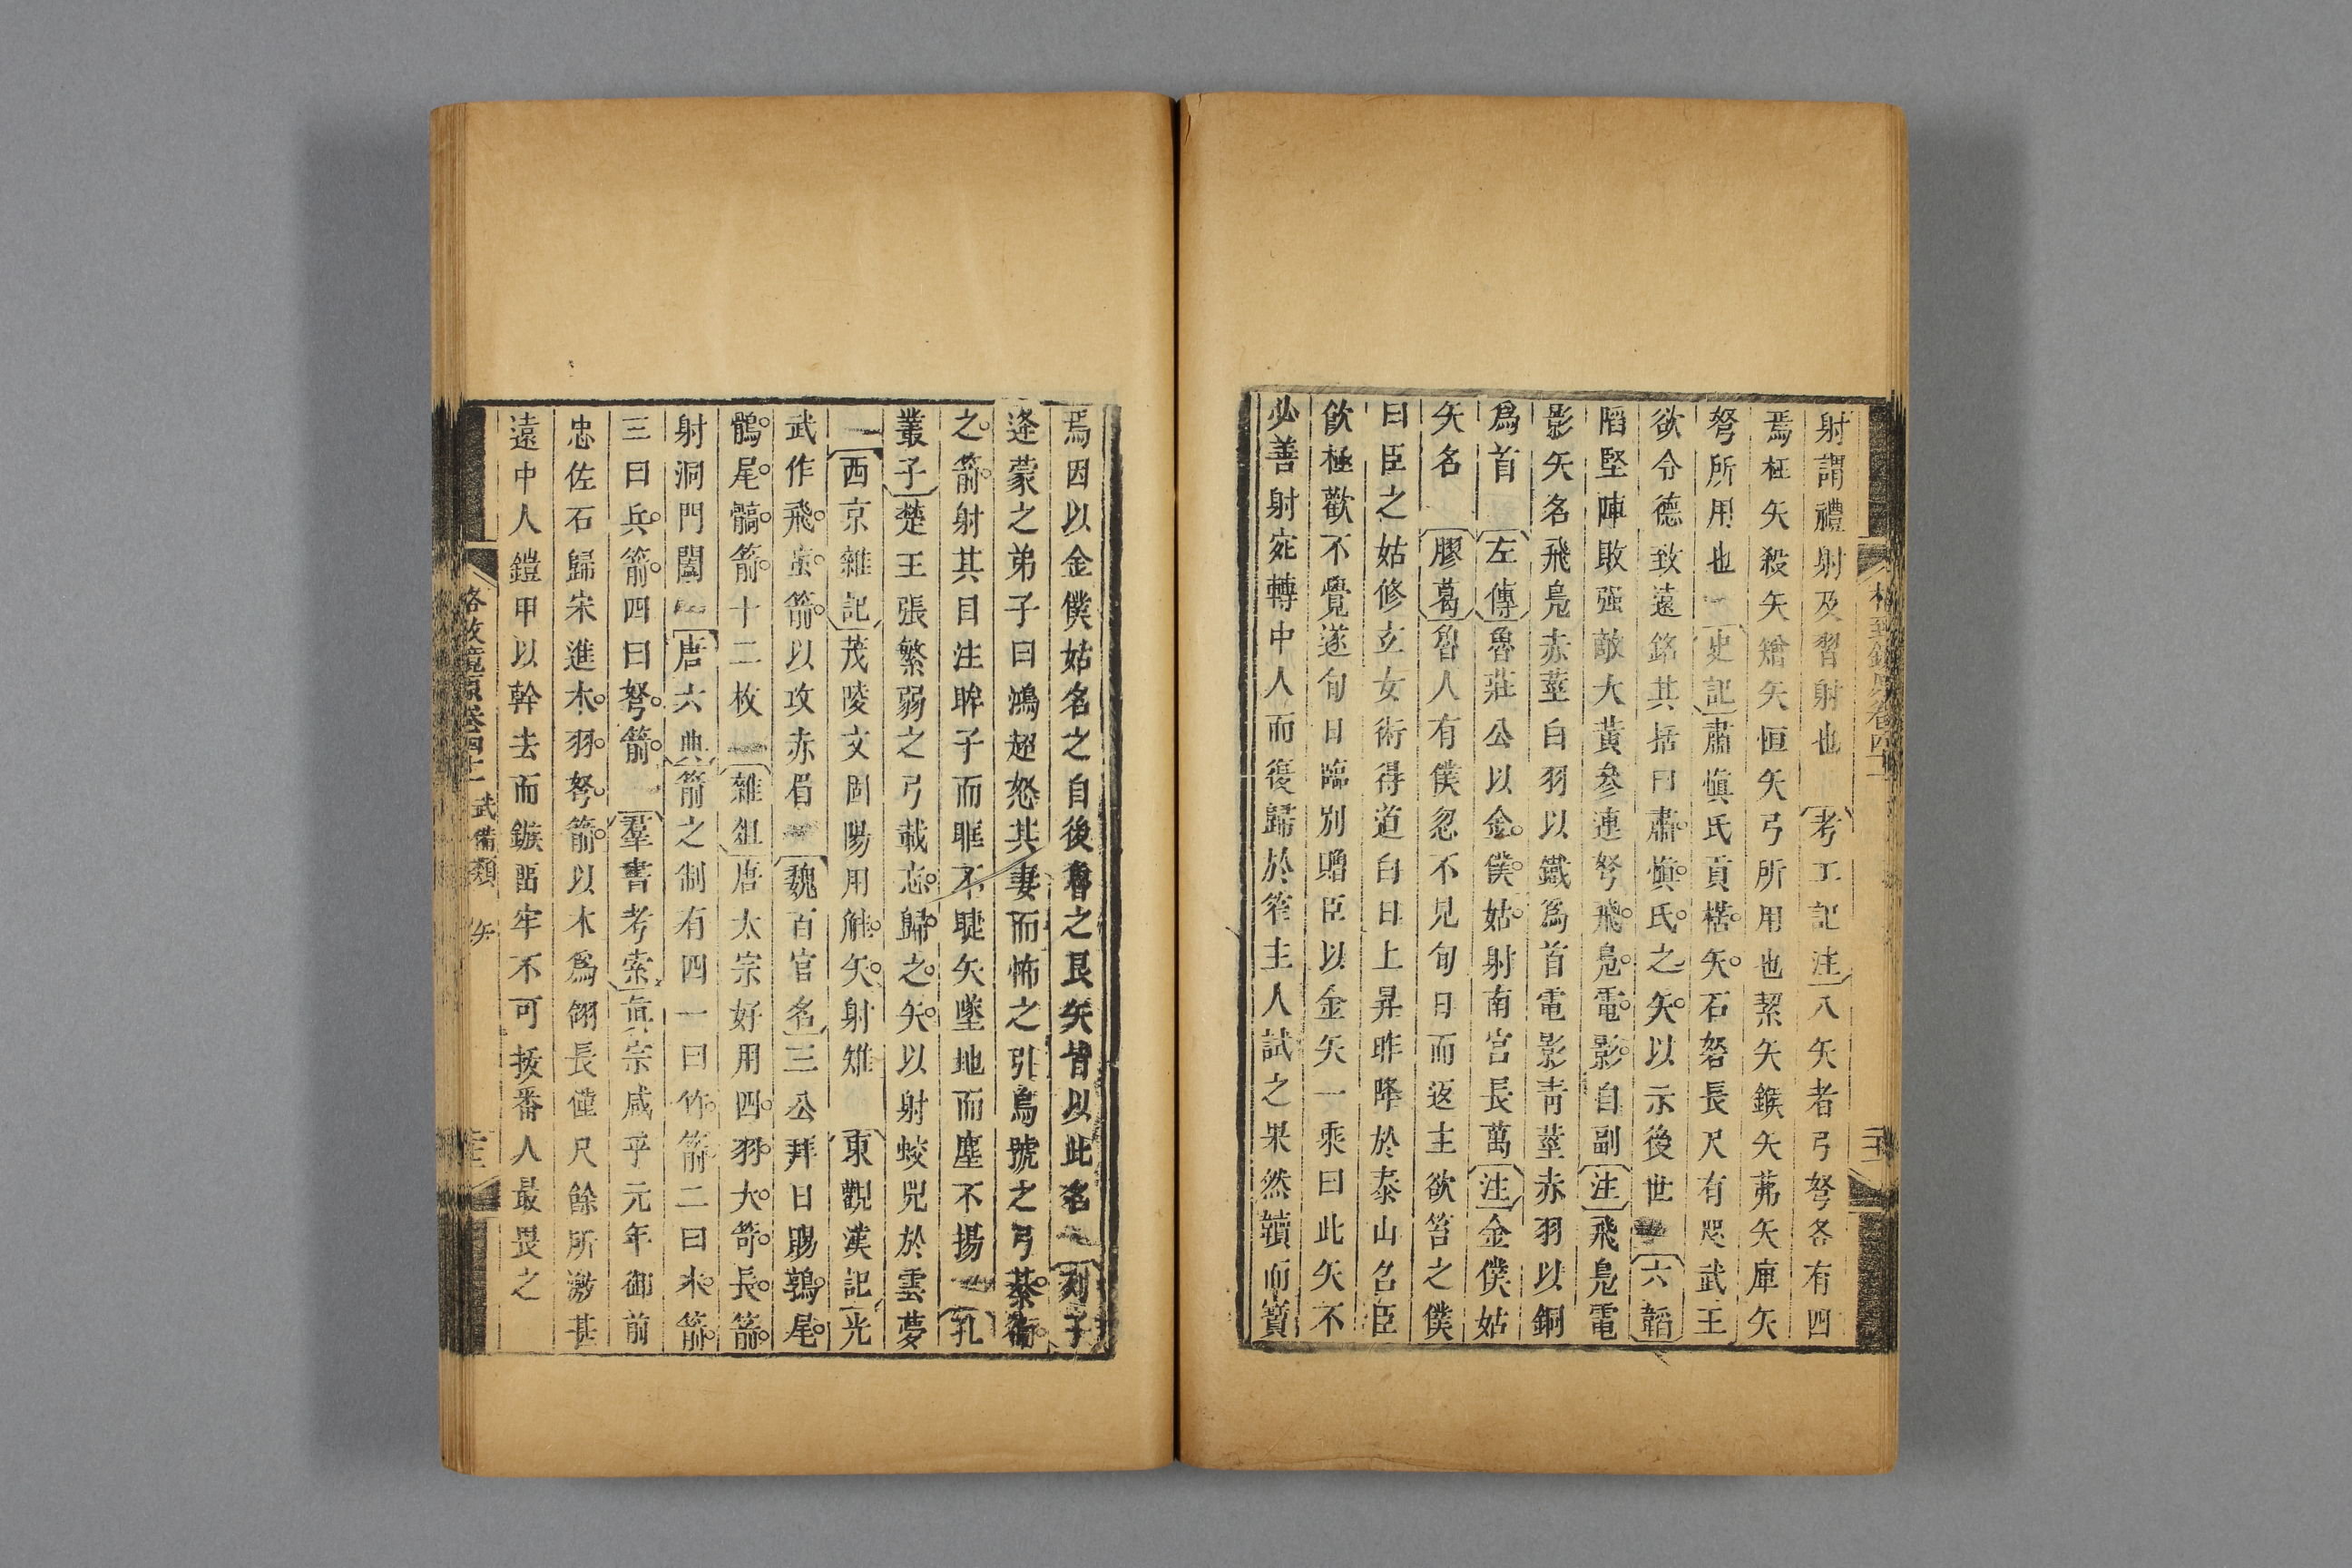 射謂禮射及習射也 考工記注 八矢者弓弩各有四
焉枉矢殺矢矰矢恒矢弓所用也絜矢鍭矢茀矢庳矢
弩所用也 史記 肅愼氏貢楛矢石砮長尺有咫武王
欲令德致遠銘其括曰肅愼氏之矢以示後世 六韜
陷堅陣敗强敵大黃參連弩飛鳧電影自副 注 飛鳧電
影矢名飛鳧赤莖白羽以鐵爲首電影靑莖赤羽以銅
爲首 左傳 魯莊公以金僕姑射南宮長萬 注 金僕姑
矢名 膠葛 魯人有僕忽不見旬日而返主欲笞之僕
曰臣之姑修玄女術得道白日上昇昨降於泰山名臣
飲極歡不覺遂旬日臨別贈臣以金矢一乘曰此矢不
必善射宛轉中人而復歸於笮主人試之果然韥而寶
格致鏡原卷四十一
焉因以金僕姑名之自後魯之良矢皆以此名 列子
逄蒙之弟子曰鴻超怒其妻而怖之引烏號之弓綦衛
之箭射其目注眸子而眶不睫矢墜地而塵不揚 孔
叢子 楚王張繁弱之弓載忘歸之矢以射蛟兕於雲夢
西京雜記 茂陵文固陽用觟矢射雉 東觀漢記 光
武作飛䖟箭以攻赤眉 魏百官名 三公拜日賜鶉尾
鶻尾髇箭十二枚 雜俎 唐太宗好用四羽大笴長箭
射洞門闔 唐六典 箭之制有四一曰竹箭二曰木箭
三曰兵箭四曰弩箭 羣書考索 眞宗咸平元年御前
忠佐石歸宋進木羽弩箭以木爲翎長僅尺餘所激甚
遠中人鎧甲以幹去而鏃畱牢不可拔番人最畏之
格致鏡原卷四十一 武備類 矢